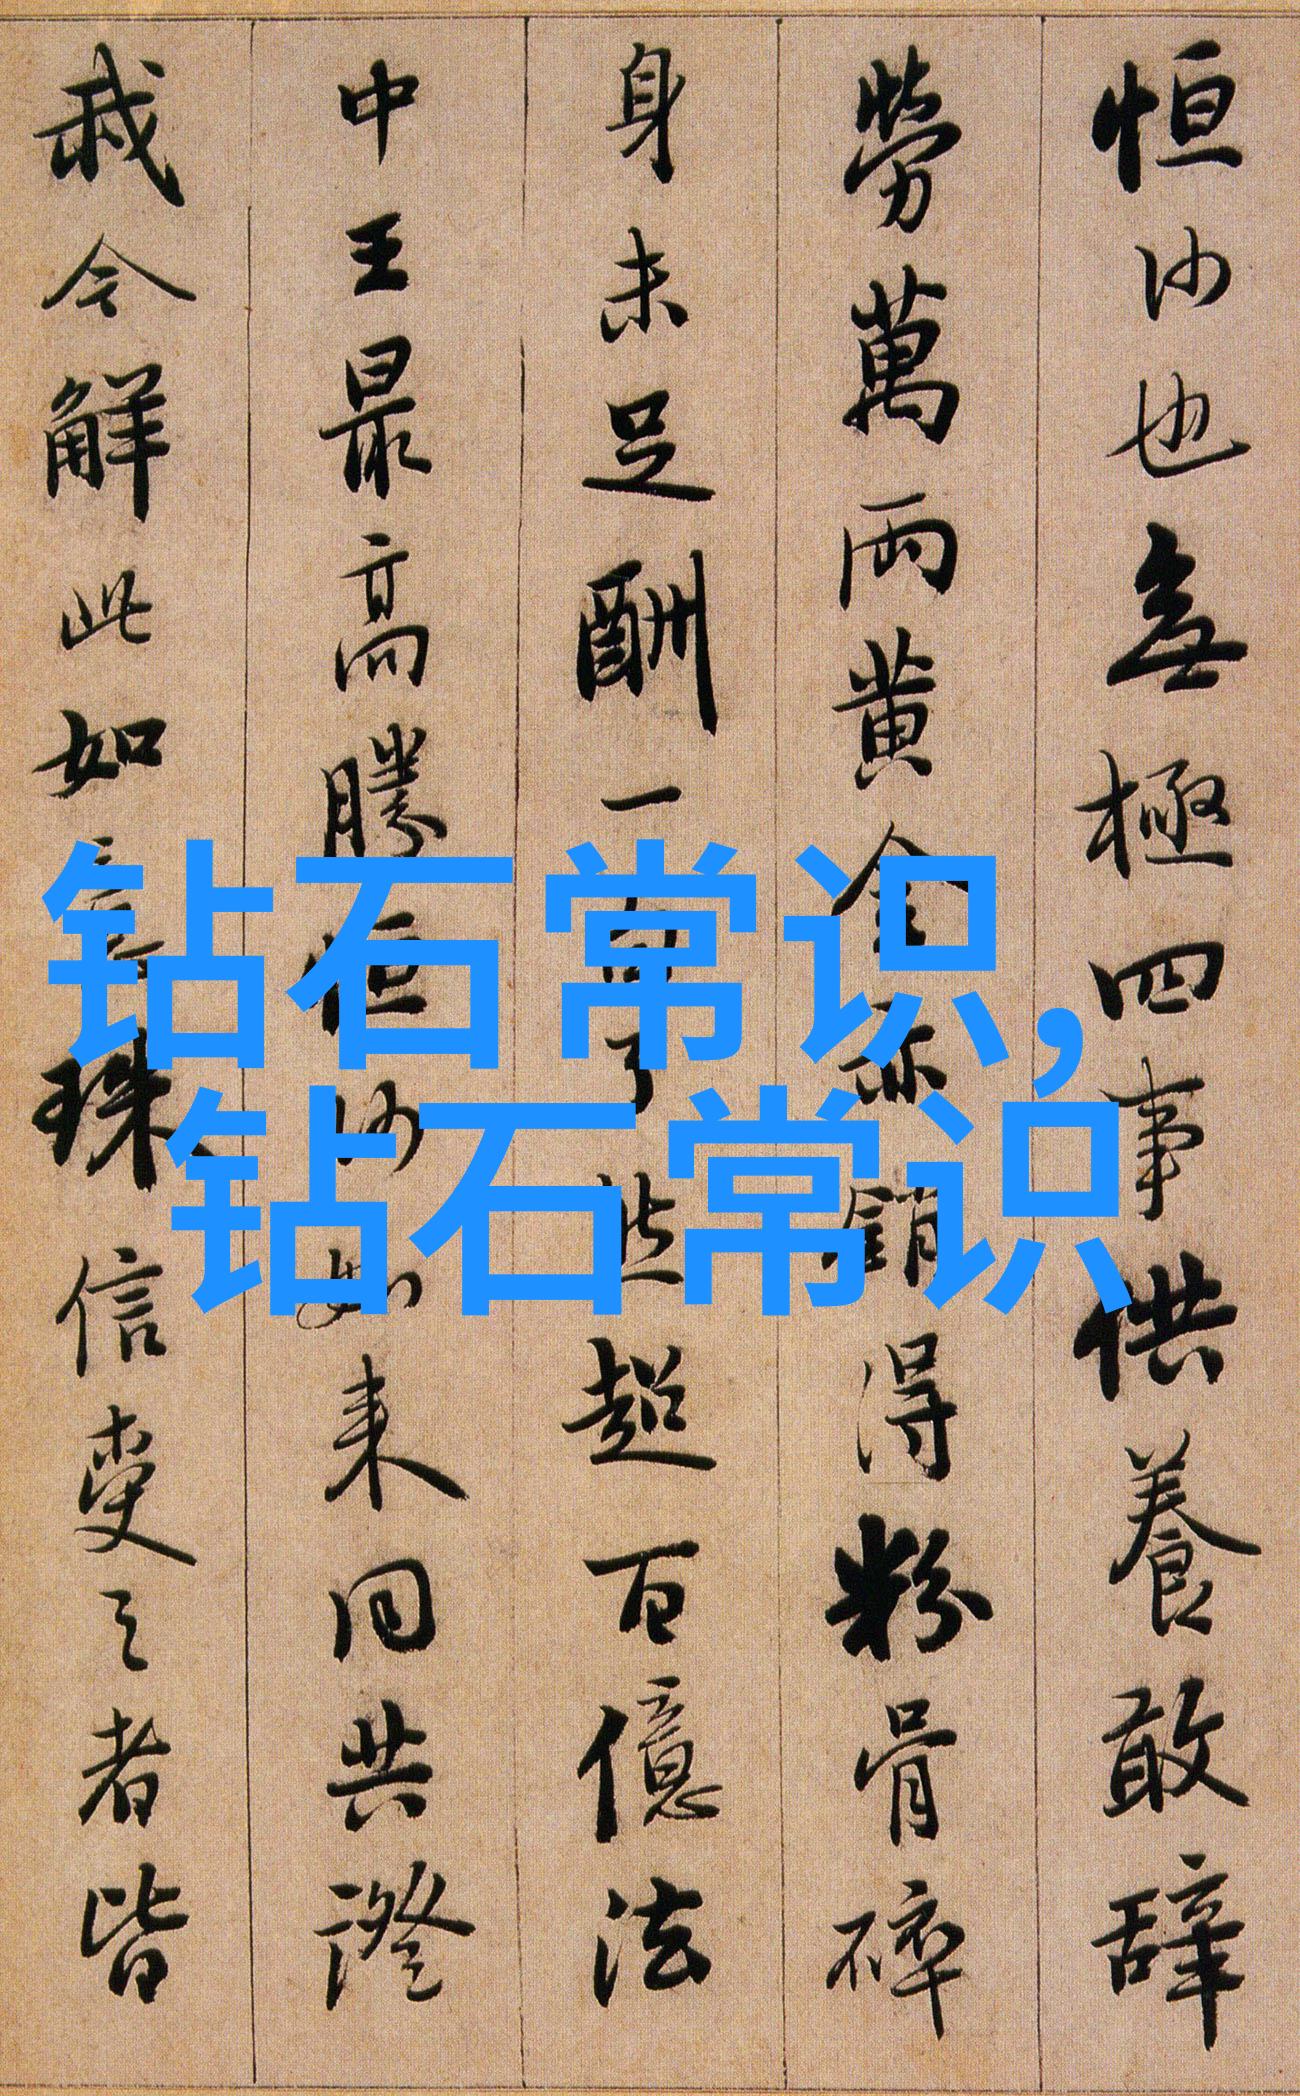 恒沙也無極四事供養敢辭
勞萬兩黃金亦銷得粉骨碎
身未足酬一句了然超百億法
中王最高勝恒沙如來同共證
我今解此如意珠信受之者皆
钻石常识,
钻石常识